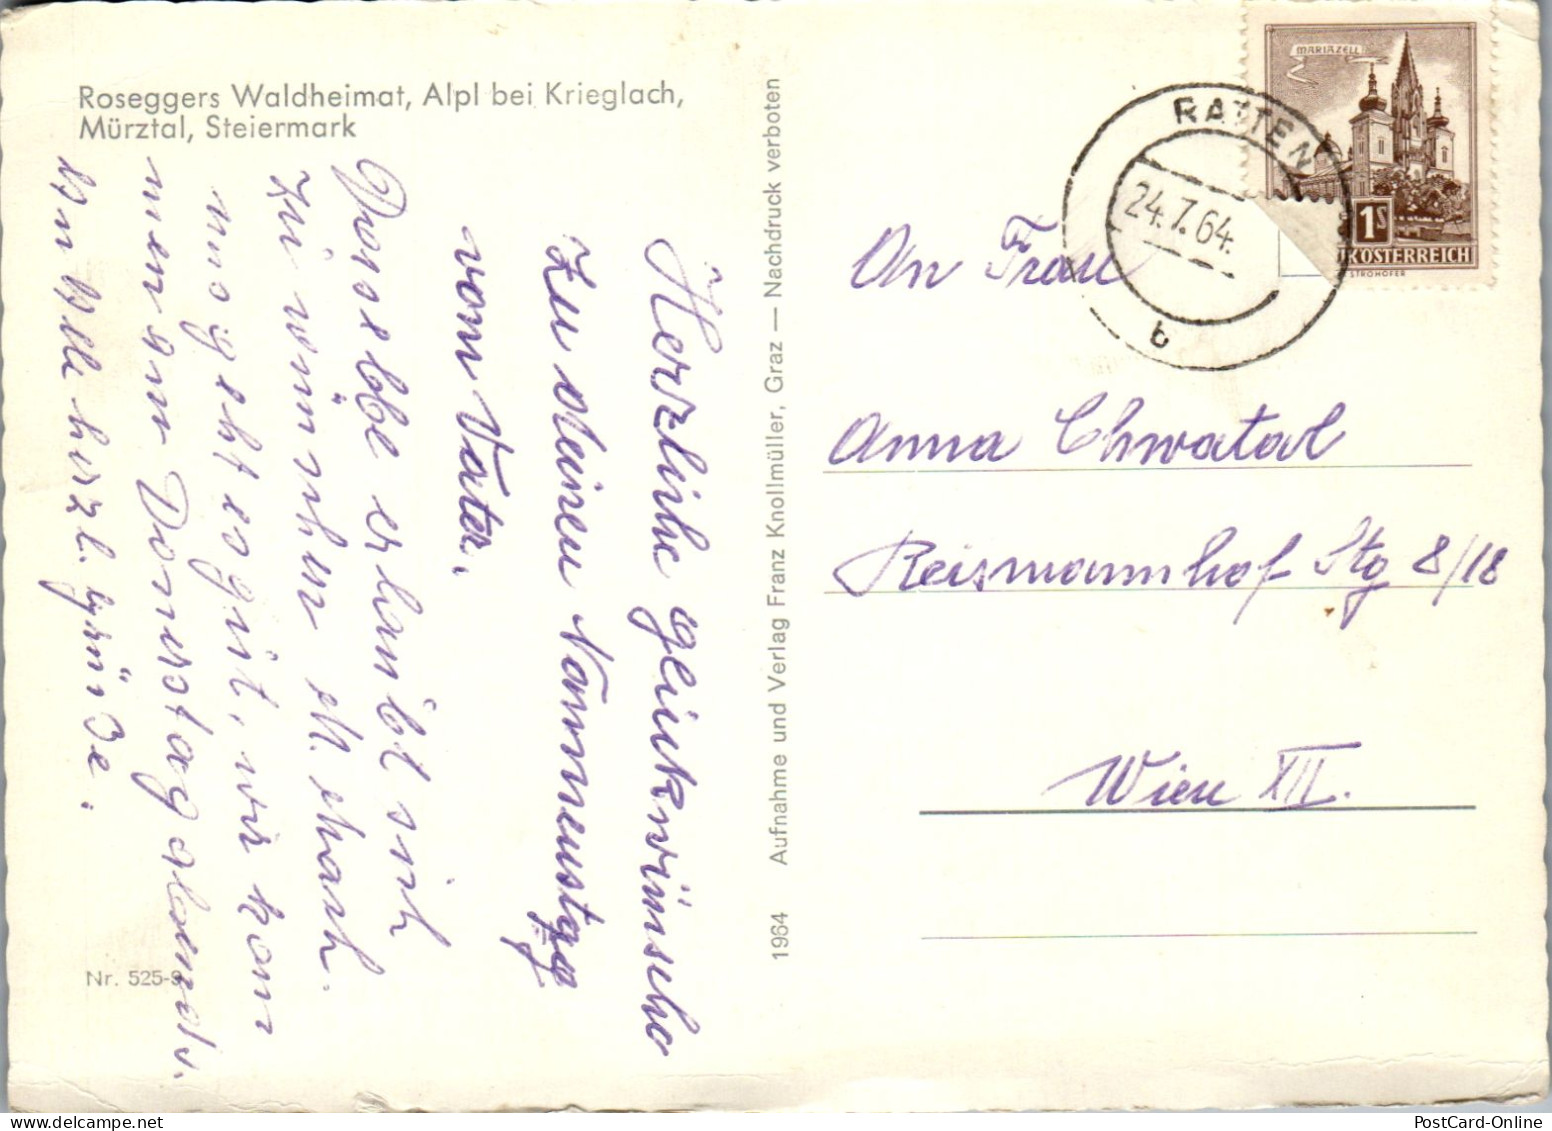 Roseggers Waldheimat, Alpl bei Krieglach,
Mürztal, Steiermark
Herzliche glückwünsche
Zu deinen Nammenstag
vom Vater.
Dasselbe erlaubt sich
zu wünschen
uns geht es gut, wir kom
men am Donerstag abend
herzl. grüße.
Nr. 525-9
1964 Aufnahme und Verlag Franz Knollmüller, Graz — Nachdruck verboten
MARIAZELL
1S
KOSTERREICH
STROHOFER
RATTEN
24.7.64.
b
An Frau
Anna Chwatal
Reismannhof Stg 8/18
Wien XII.
PostCard-Online